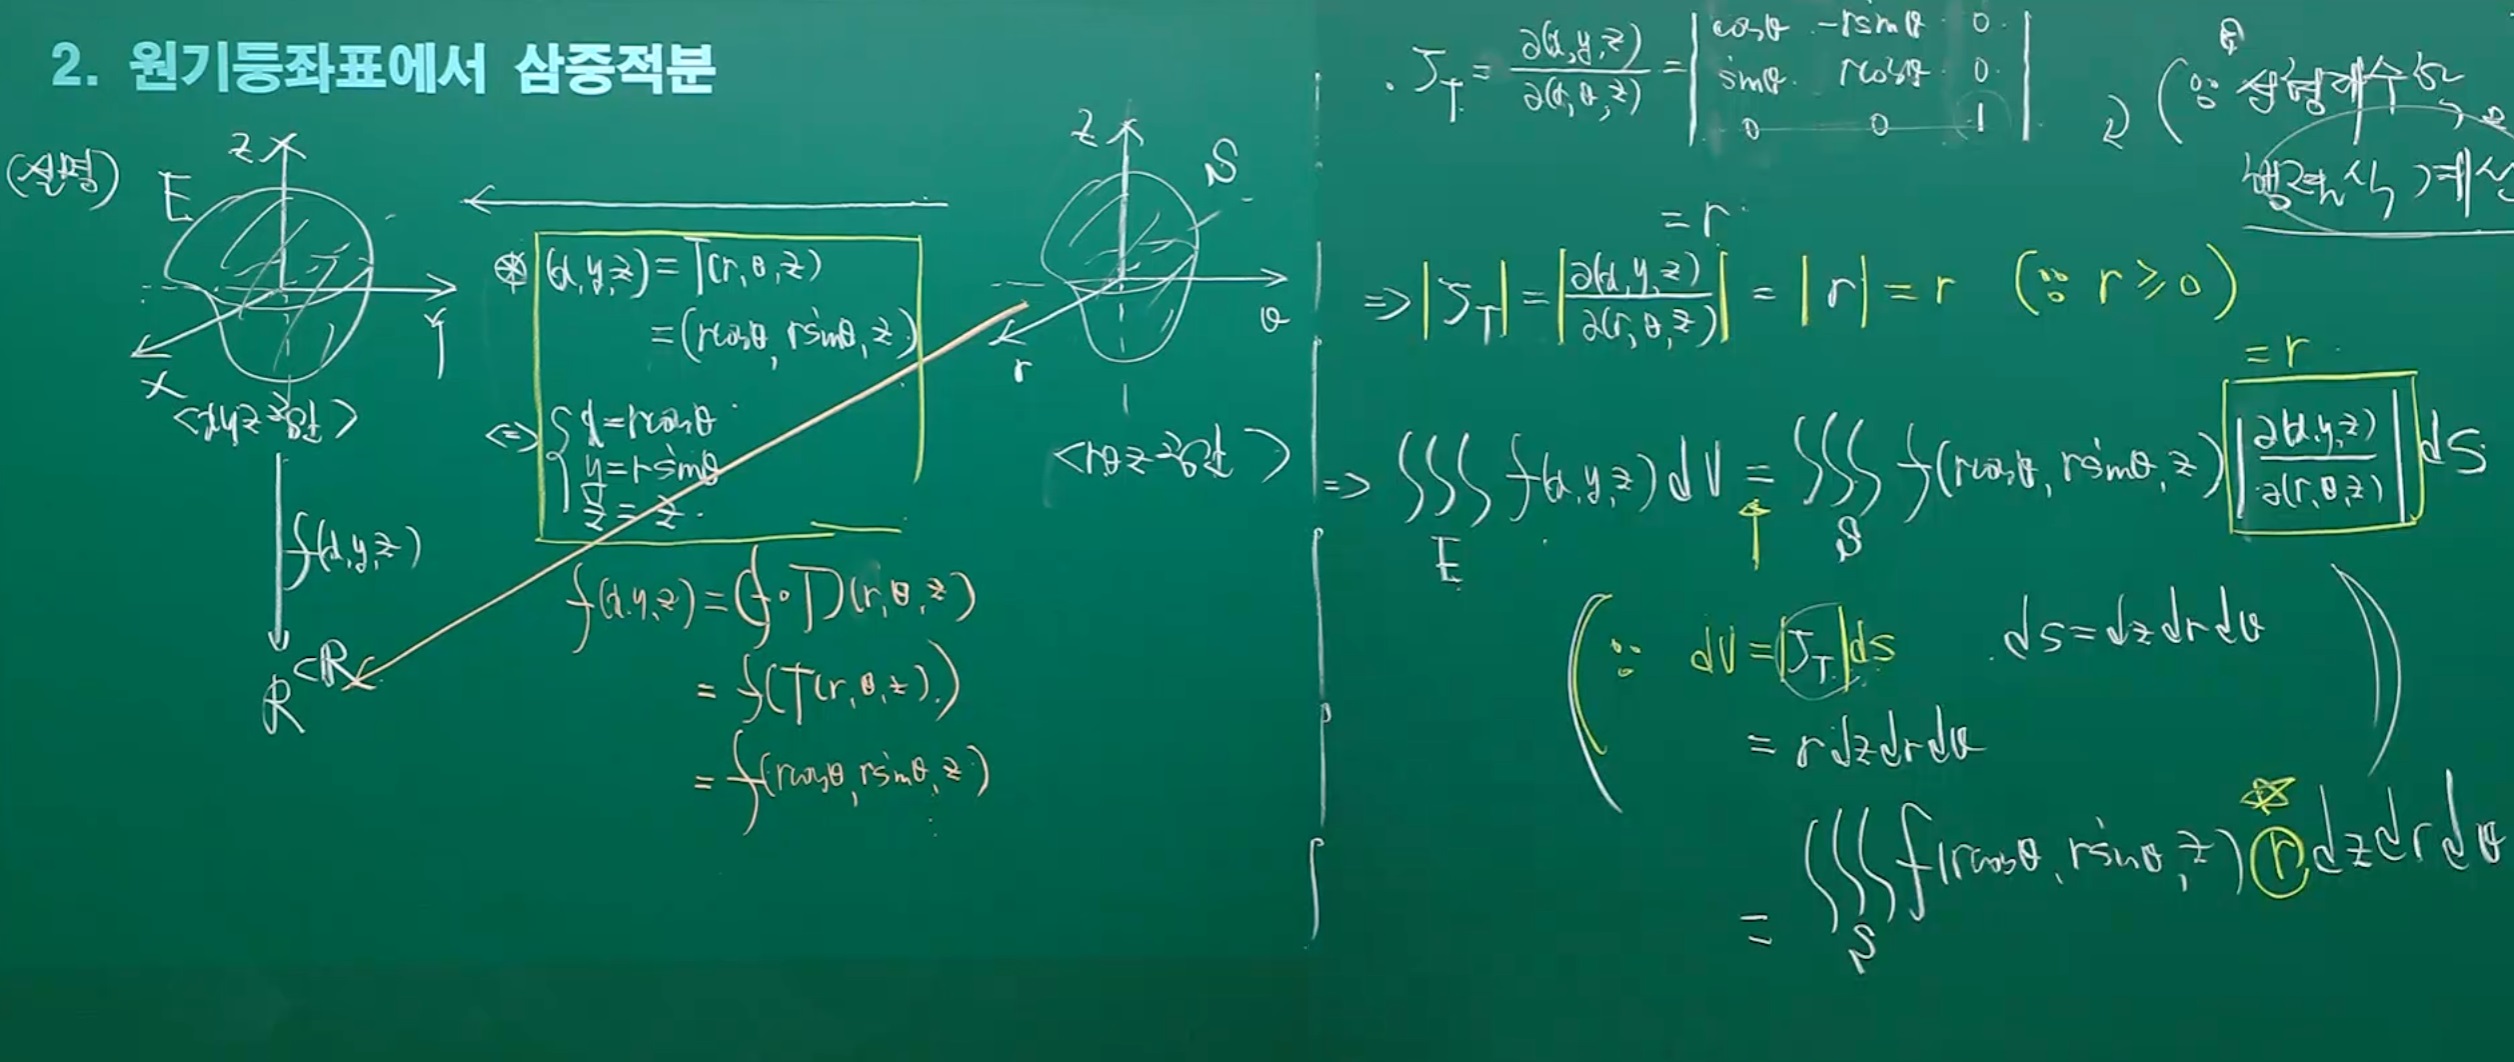 2. 원기둥좌표에서 삼중적분
(설명)
E
z
Y
x
<xyz-공간>
f(x,y,z)
R
⊂R
⊛ (x,y,z) = T(r,θ,z)
= (rcosθ, rsinθ, z)
⇔ { x = rcosθ
y = rsinθ
z = z
z
S
θ
r
<rθz-공간>
f(x,y,z) = (f∘T)(r,θ,z)
= f(T(r,θ,z))
= f(rcosθ, rsinθ, z)
J_T = ∂(x,y,z)/∂(r,θ,z) = | cosθ -rsinθ 0
sinθ rcosθ 0
0 0 1 |
= r
⇒ |J_T| = |∂(x,y,z)/∂(r,θ,z)| = |r| = r (∵ r ≥ 0)
= r
⇒ ∭_E f(x,y,z) dV = ∭_S f(rcosθ, rsinθ, z) |∂(x,y,z)/∂(r,θ,z)| dS
(∵ dV = |J_T| ds ds = dzdrdθ)
= r dzdrdθ
= ∭_S f(rcosθ, rsinθ, z) r dzdrdθ